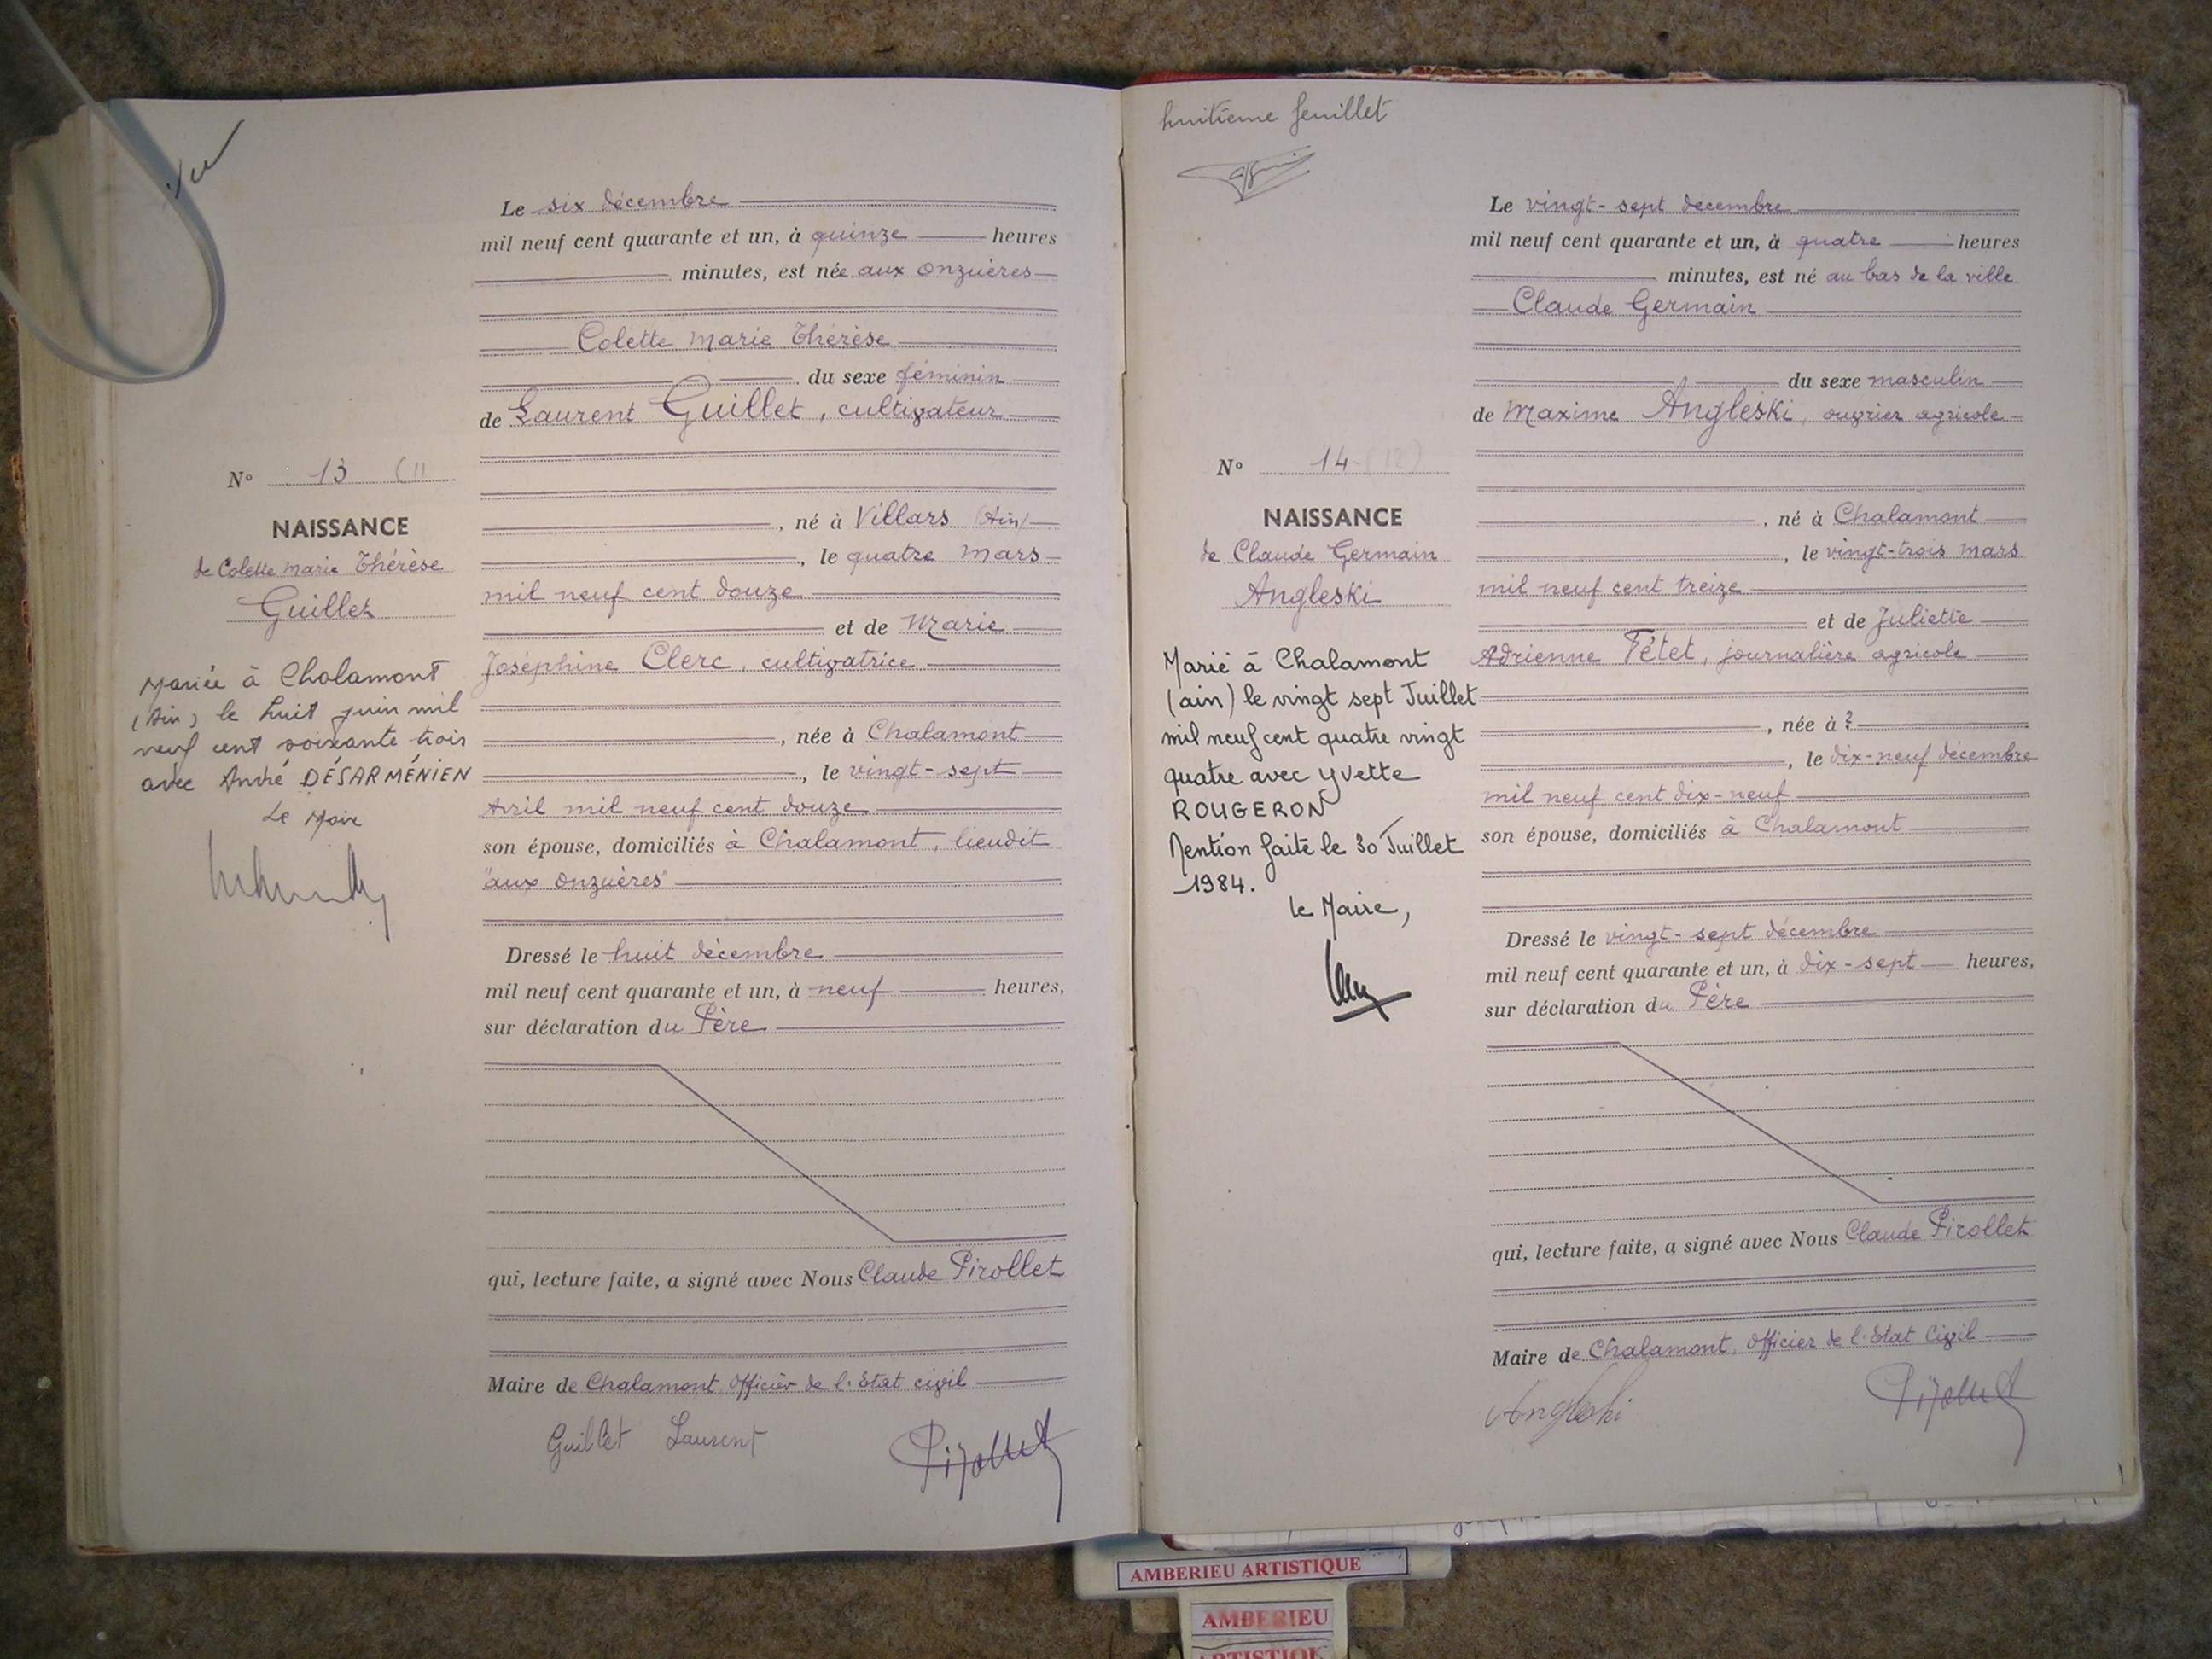 Le six décembre
mil neuf cent quarante et un, à quinze heures
minutes, est née aux onzuères
Colette Marie Thérèse
du sexe féminin
de Laurent Guillet, cultivateur
N° 13 (11
, né à Villars (Ain)
NAISSANCE
, le quatre Mars
de Colette Marie Thérèse
mil neuf cent douze
Guillet
et de Marie
Joséphine Clerc, cultivatrice
Mariée à Chalamont
(Ain) le huit juin mil
neuf cent soixante trois
avec André DÉSARMÉNIEN
Le Maire
, née à Chalamont
, le vingt-sept
Avril mil neuf cent douze
son épouse, domiciliés à Chalamont, lieudit
"aux onzuères"
Dressé le huit décembre
mil neuf cent quarante et un, à neuf heures,
sur déclaration du Père
qui, lecture faite, a signé avec Nous Claude Pirollet
Maire de Chalamont, officier de l'Etat civil
Guillet Laurent
Pirollet
huitième feuillet
Le vingt-sept décembre
mil neuf cent quarante et un, à quatre heures
minutes, est né au bas de la ville
Claude Germain
du sexe masculin
de Maxime Angleski, ouvrier agricole
N° 14 (12)
, né à Chalamont
NAISSANCE
, le vingt-trois Mars
de Claude Germain
mil neuf cent treize
Angleski
et de Juliette
Adrienne Tétet, journalière agricole
Marié à Chalamont
(ain) le vingt sept Juillet
mil neuf cent quatre vingt
quatre avec Yvette
ROUGERON
Mention faite le 30 Juillet
1984.
le Maire,
, née à ?
, le dix-neuf décembre
mil neuf cent dix-neuf
son épouse, domiciliés à Chalamont
Dressé le vingt-sept décembre
mil neuf cent quarante et un, à dix-sept heures,
sur déclaration du Père
qui, lecture faite, a signé avec Nous Claude Pirollet
Maire de Chalamont, officier de l'Etat Civil
Angleski
Pirollet
AMBERIEU ARTISTIQUE
AMBERIEU
ARTISTIQUE